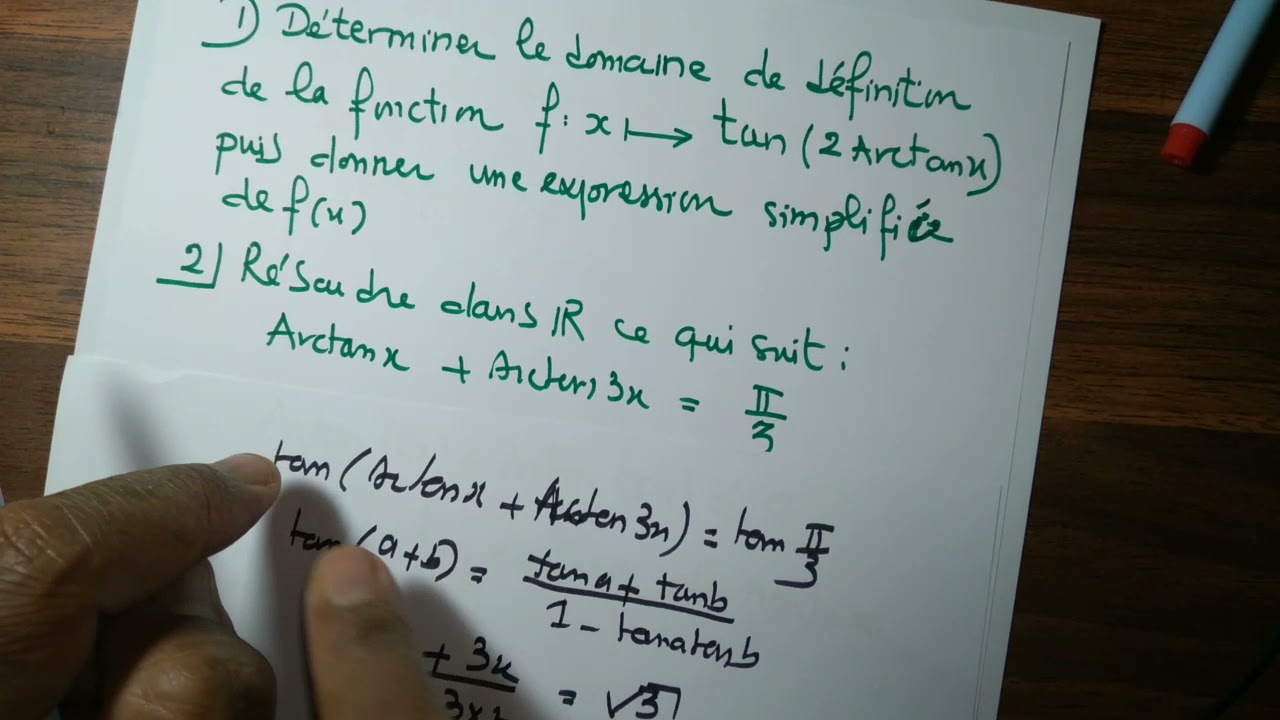 1) Déterminer le domaine de définition
de la fonction f: x ⟼ tan(2 Arctanx)
puis donner une expression simplifiée
de f(x)
2) Résoudre dans ℝ ce qui suit :
Arctanx + Arctan 3x = π/3
tan(Arctanx + Arctan 3x) = tan π/3
tan(a+b) = (tana + tanb)/(1 - tanatanb)
+ 3x / 3x² = √3